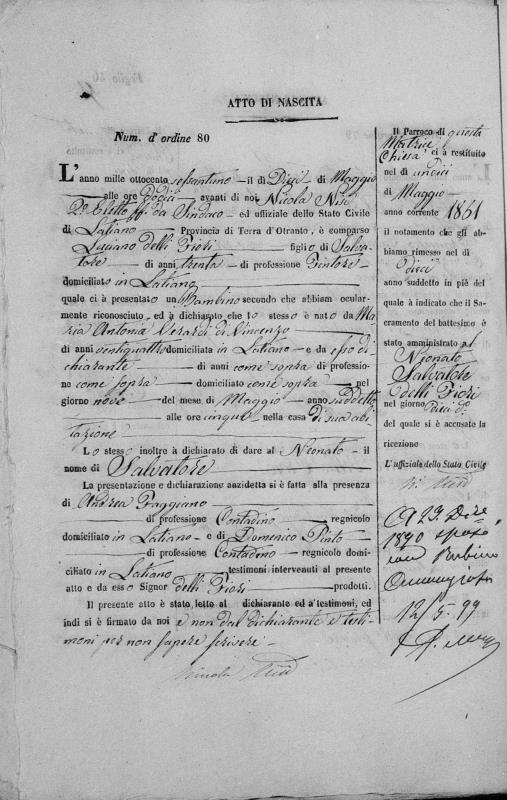 ATTO DI NASCITA
Num. d'ordine 80
L'anno mille ottocento sessantuno il dì Dieci di Maggio
alle ore dodici avanti di noi Nicola
da Sindaco ed uffiziale dello Stato Civile
di Latiano Provincia di Terra d'Otranto, è comparso
Luciano delli Fiori figlio di Salva-
tore di anni trenta di professione
domiciliato in Latiano
quale ci à presentato un Bambino secondo che abbiam ocular-
mente riconosciuto, ed à dichiarato che lo stesso è nato da Ma-
ria Antonia Verardi di Vincenzo
di anni ventiquattro domiciliata in Latiano e da esso di-
chiarante di anni come sopra di professio-
ne come sopra domiciliato come sopra nel
giorno nove del mese di Maggio anno suddetto
alle ore cinque nella casa di sua abi-
tazione
Lo stesso inoltre à dichiarato di dare al Neonato il
nome di Salvatore
La presentazione e dichiarazione anzidetta si è fatta alla presenza
di Andrea
di professione Contadino regnicolo
domiciliato in Latiano e di Domenico Pinto
di professione Contadino regnicolo domi-
ciliato in Latiano testimoni intervenuti al presente
atto e da esso Signor delli Fiori prodotti.
Il presente atto è stato letto al dichiarante ed a' testimoni, ed
indi si è firmato da noi e non dal dichiarante e testi-
moni per non sapere scrivere
Nicola
Il Parroco di questa
Matrice
Chiesa ci à restituito
nel dì undici
di Maggio
anno corrente 1861
il notamento che gli ab-
biamo rimesso nel dì
dieci
anno suddetto in piè del
quale à indicato che il Sa-
cramento del battesimo è
stato amministrato al
Neonato
Salvatore
delli Fiori
nel giorno dieci do
del quale si è accusato la
ricezione
L'uffiziale dello Stato Civile
A 29
1890 sposò
12/5-99